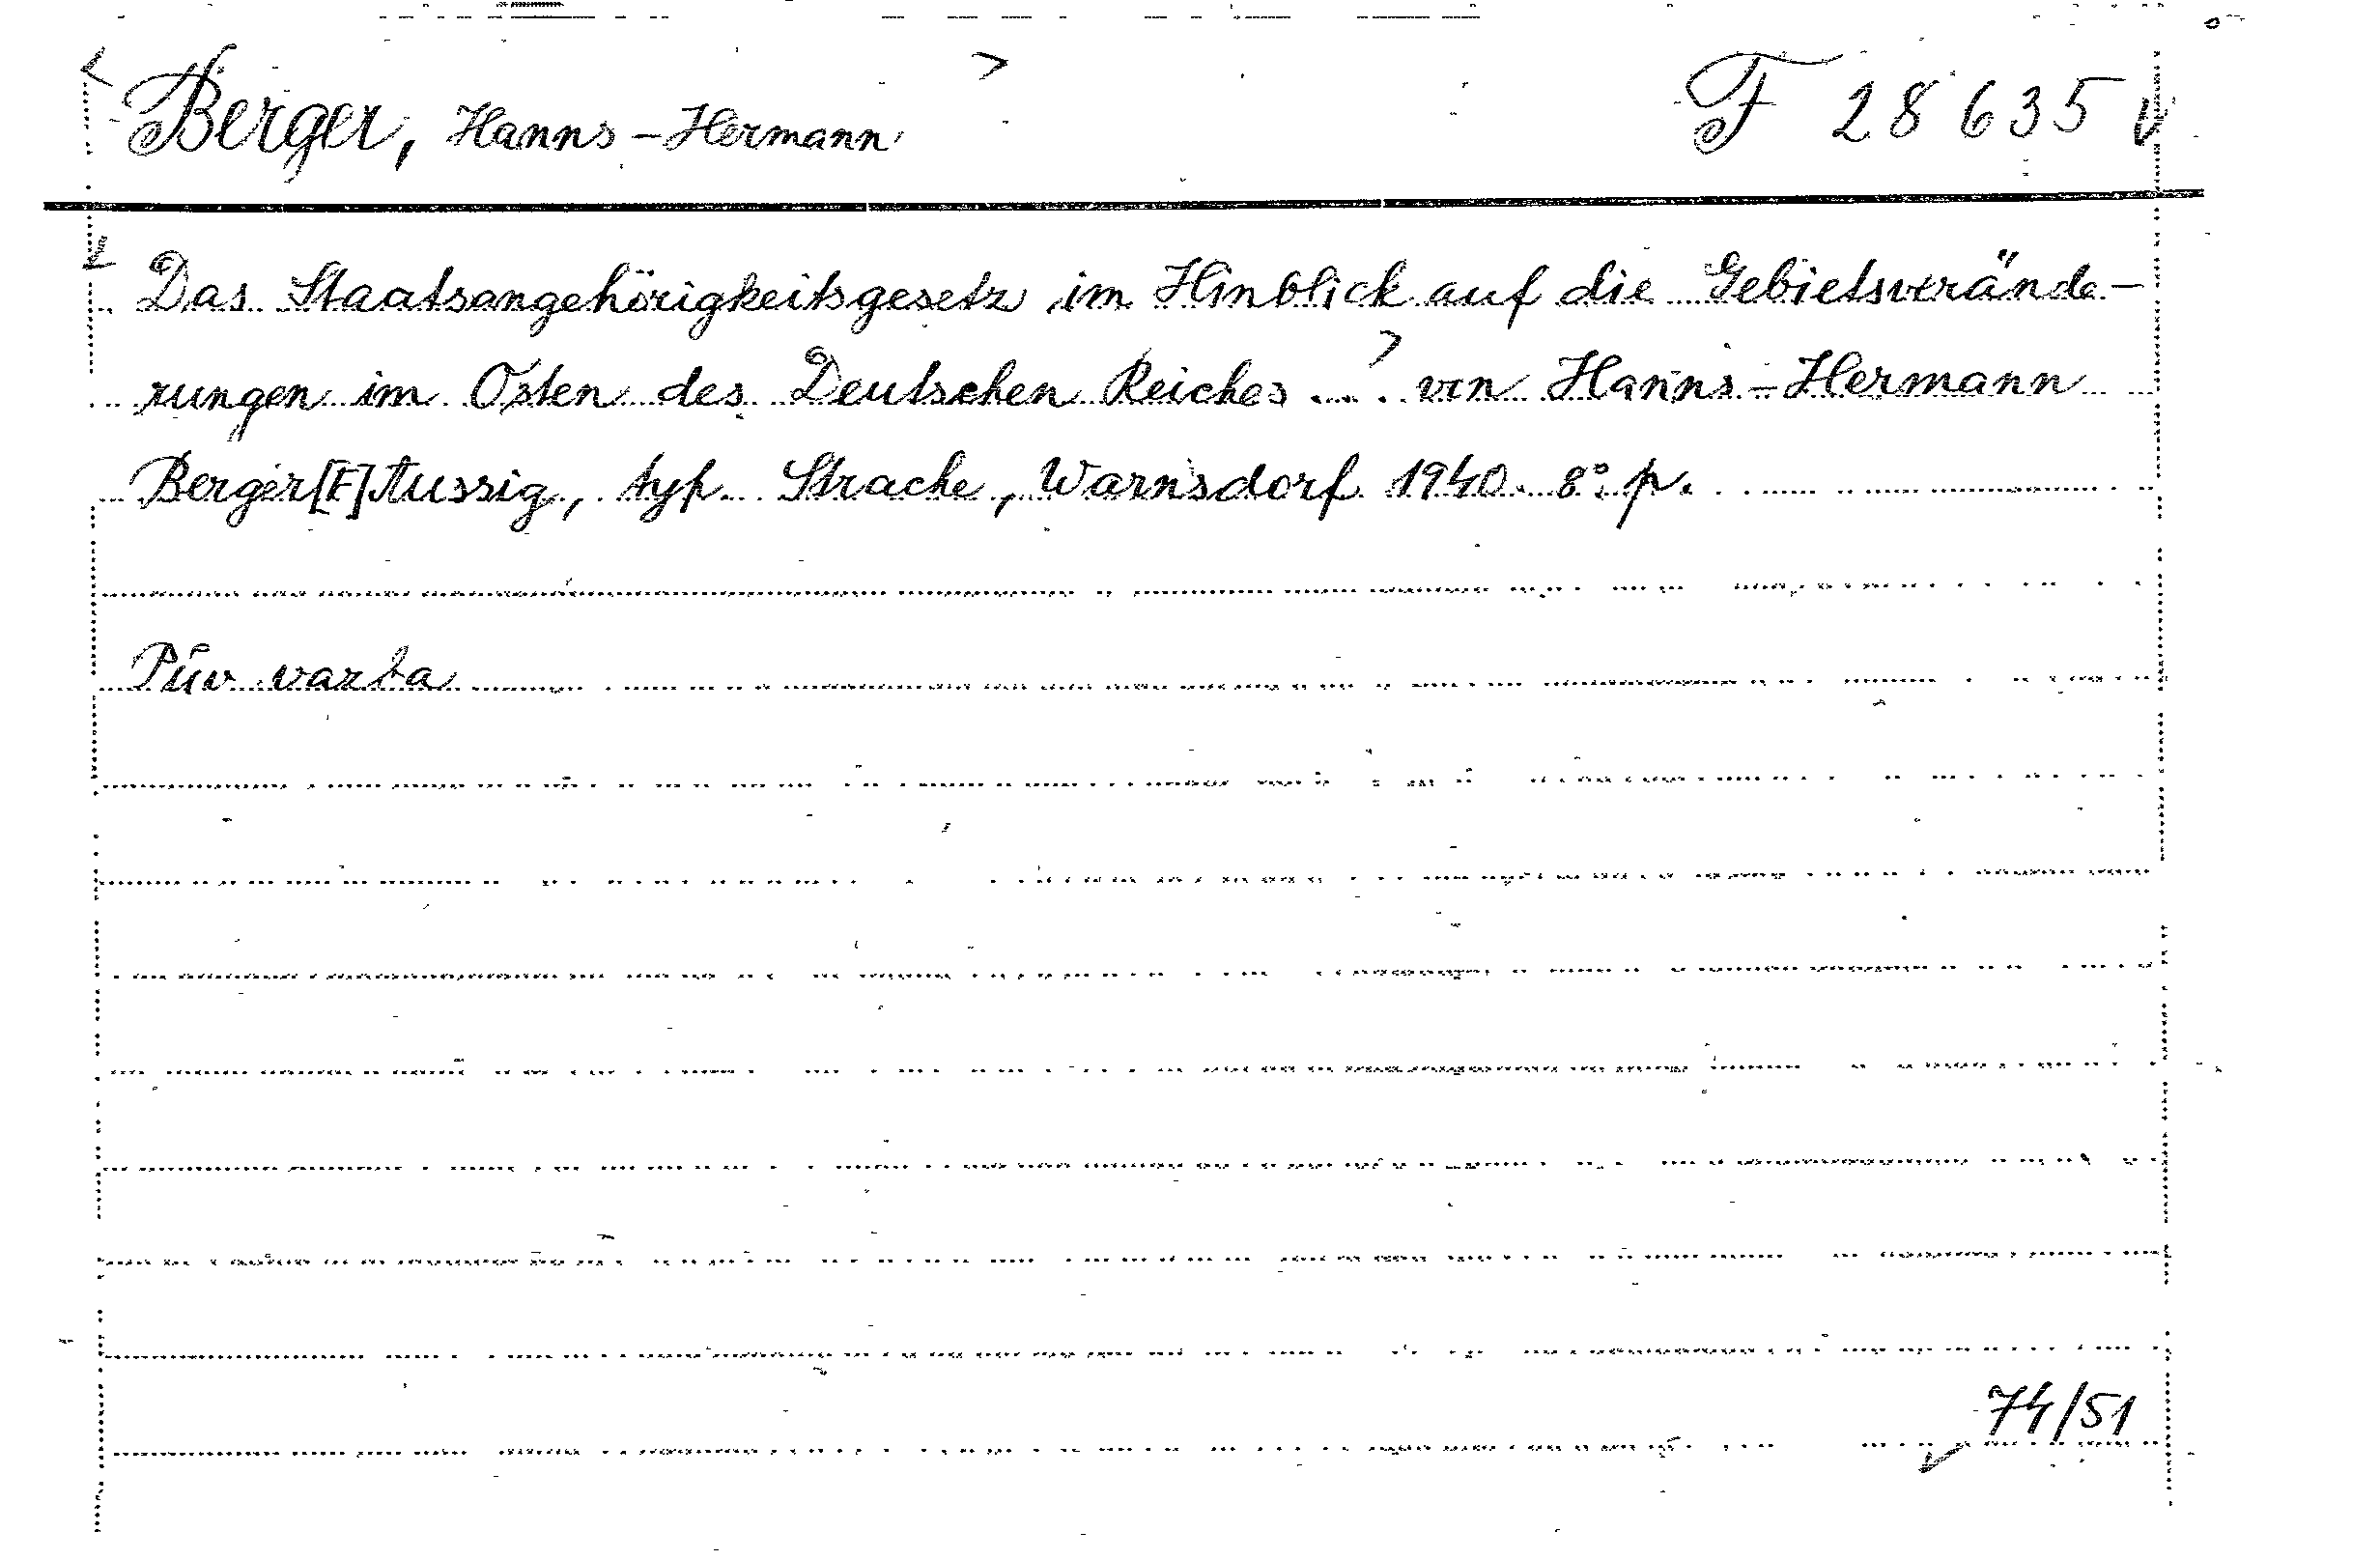 Berger, Hanns-Hermann F 28635
Das Staatsangehörigkeitsgesetz im Hinblick auf die Gebietsverände-
rungen im Osten des Deutschen Reiches ... von Hanns-Hermann
Berger [E] Aussig, typ. Strache, Warnsdorf 1940. 8° p.
Pův vazba
74/51